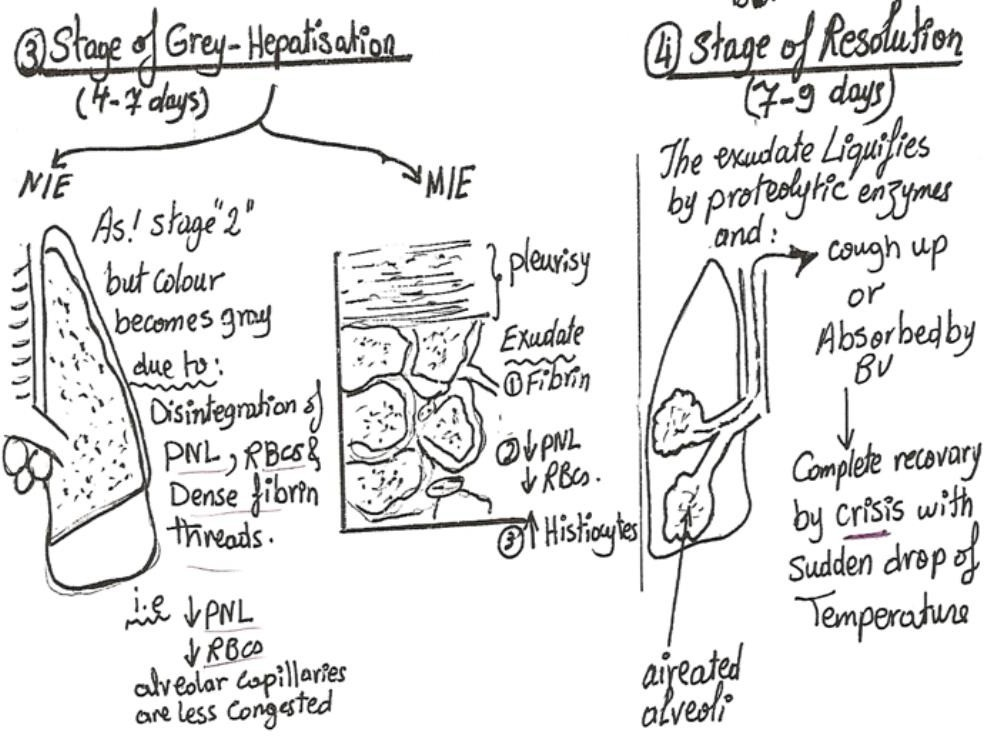 ③ Stage of Grey-Hepatisation
(4-7 days)
N/E
As! stage "2"
but colour
becomes gray
due to:
Disintegration of
PNL, RBCs &
Dense fibrin
threads.
i.e ↓ PNL
↓ RBCs
alveolar capillaries
are less Congested
M/E
pleurisy
Exudate
① Fibrin
② ↓ PNL
↓ RBCs.
③ ↑ Histiocytes
④ Stage of Resolution
(7-9 days)
The exudate Liquifies
by proteolytic enzymes
and:
cough up
or
Absorbed by
BV
Complete recovary
by crisis with
Sudden drop of
Temperature
aireated
alveoli